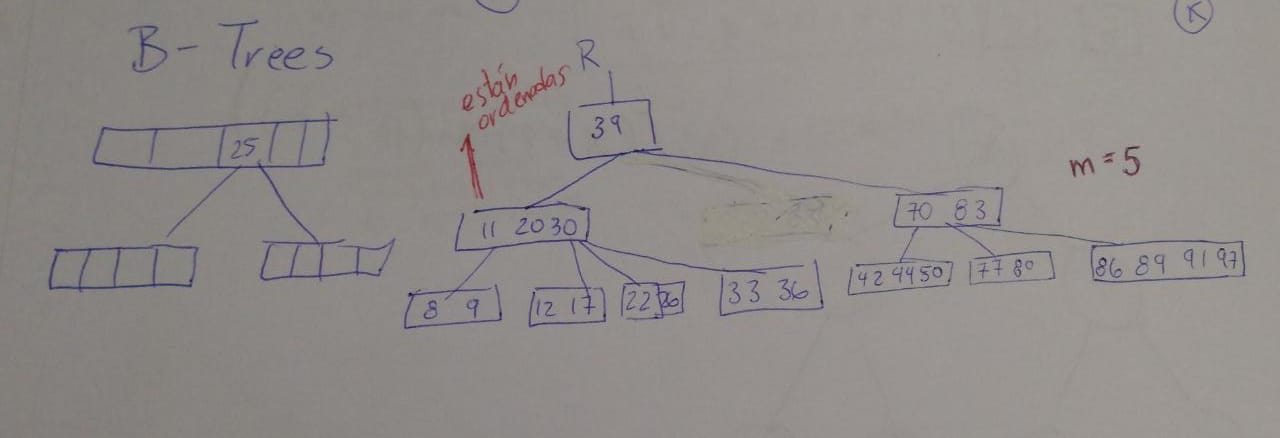 K
B-Trees
están
ordenadas
R
39
25
m=5
11 20 30
70 83
8 9
12 17
22 26
33 36
42 44 50
77 80
86 89 91 97